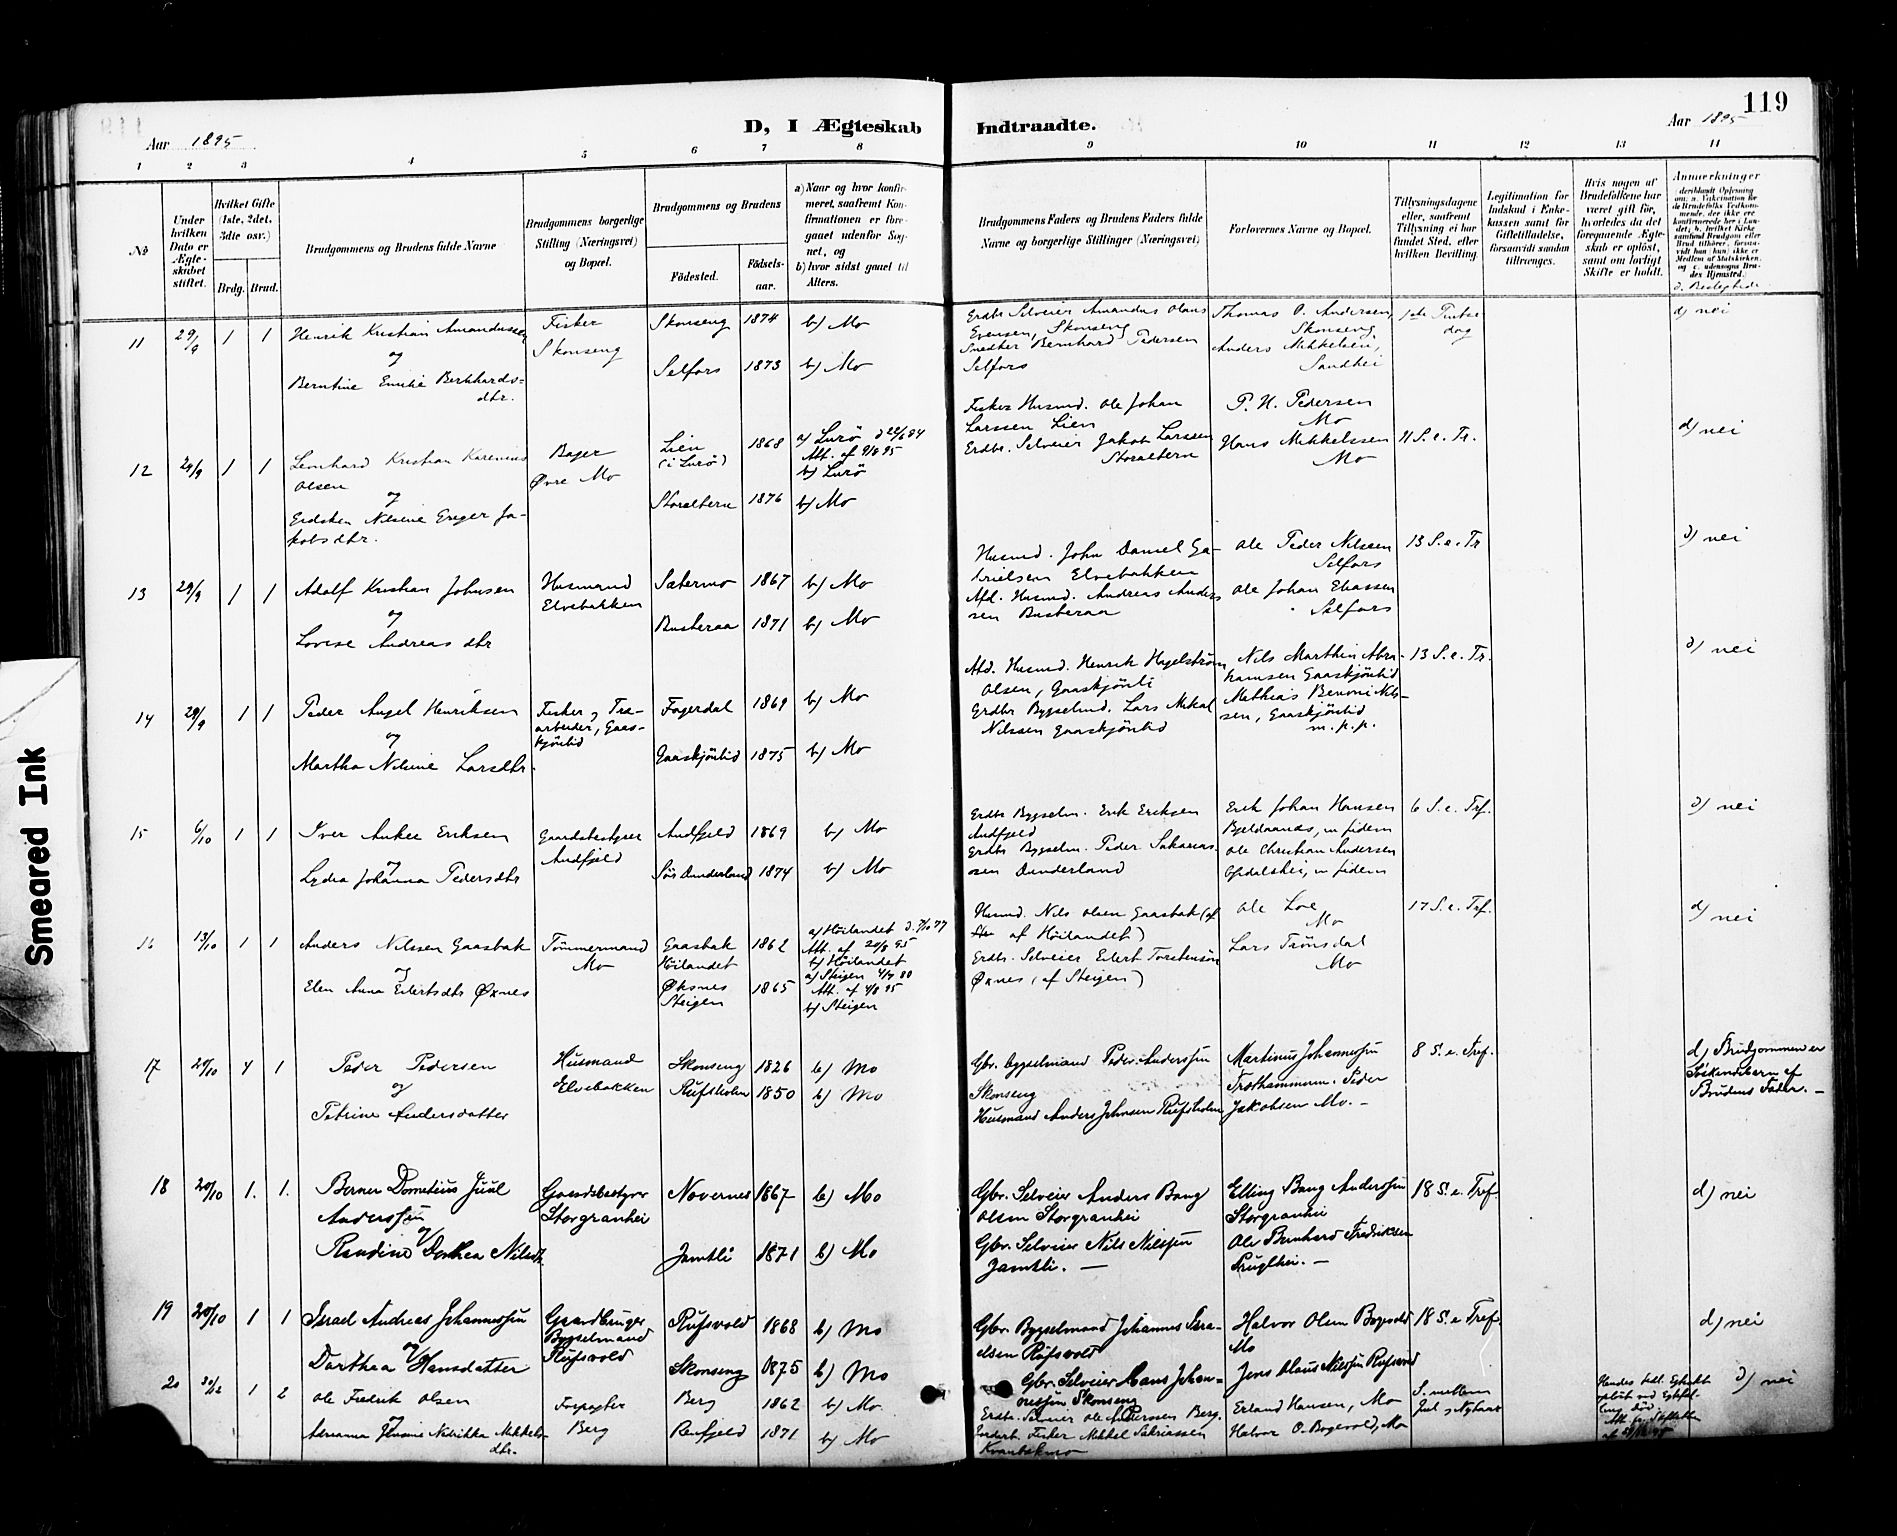 119
Aar 1895
D, I Ægteskab Indtraadte.
Aar 1895
1 2 3 4 5 6 7 8 9 10 11 12 13 14
No
Under hvilken Dato er Ægteskabet stiftet.
Hvilket Gifte (1ste, 2det, 3die osv.)
Brdg. Brud.
Brudgommens og Brudens fulde Navne
Brudgommens borgerlige Stilling (Næringsvei) og Bopæl.
Brudgommens og Brudens
Födested.
Födsels-aar.
a) Naar og hvor konfirmeret, saafremt Konfirmationen er foregaaet udenfor Sognet, og
b) hvor sidst gaaet til Alters.
Brudgommens Faders og Brudens Faders fulde Navne og borgerlige Stillinger (Næringsvei)
Forlovernes Navne og Bopæl.
Tillysningsdagene eller, saafremt Tillysning ei har fundet Sted, efter hvilken Bevilling.
Legitimation for Indskud i Enkekassen samt for Giftetilladelse, forsaavidt saadan tiltrænges.
Hvis nogen af Brudefolkene har været gift før, hvorledes da det foregaaende Ægteskab er oplöst, samt om lovligt Skifte er holdt.
Anmerkninger
11 29/9 1 1 Henrik Kristian Amandussen
og
Berntine Emilie Bernhardsdtr.
Fisker
Skonseng
Skonseng 1874 b) Mo
Selfors 1873 b) Mo
Erdbr Selveier Amandus Olaus
Evensen, Skonseng
Bernhard Pedersen
Selfors
Thomas O. Andersen,
Skonseng
Anders Mikkelsen,
Sandhei
1ste Pintse
dag
d) nei
12 29/9 1 1 Leonhard Kristian Karenius
Olsen
og
Nilsine Greger Ja-
kobsdtr.
Bager
Øvre Mo
Lien
(i Lurö) 1868
a) Lurö d 22/6 84
Att. af 9/8 95
b) Lurö
Storalteren 1876 b) Mo
Fisker Husmd. Ole Johan
Larssen Lien
Erdbr. Selveier Jakob Larssen
Storalteren
P. H. Pedersen
Mo
Hans Mikkelssen
Mo
11 S. e. Tr.
d) nei
13 29/9 1 1 Adolf Kristian Johnsen
og
Lovise Andreasdtr
Husmand
Elvebakken
Sætermo 1867 b) Mo
Busteraa 1871 b) Mo
Husmd. John Daniel Ga-
brielsen Elvebakken
Afd. Husmd. Andreas Anders-
sen Busteraa
Ole Peder Nilssen
Selfors
Ole Johan Eliassen
Selfors
13 S. e. Tr
d) nei
14 29/9 1 1 Peder Angel Henriksen
og
Martha Nilsine Larsdtr.
Fisker, Træ-
arbeider, Gaas-
kjönlid
Fagerdal 1869 b) Mo
Gaaskjönlid 1875 b) Mo
Afd. Husmd. Henrik Hegelström
Olsen, Gaaskjönli
Erdbr Bygselmd. Lars Mikal
Nilssen Gaaskjönlid
Nils Marthin Abra-
hamsen Gaaskjönlid
Mathias Benoni Nils-
sen, Gaaskjönlid
m. p. p.
13 S. e. Tr.
d) nei
15 6/10 1 1 Iver Anker Eriksen
og
Lydia Johanna Pedersdtr
Gaardsbestyrer
Andfjeld
Andfjeld 1869 b) Mo
Sör Dunderland 1874 b) Mo
Erdbr Bygselm. Erik Eriksen
Andfjeld
Erdbr Bygselm. Peder Sakarias-
sen Dunderland
Erik Johan Hansen
Bjeldaanes, in fidem
Ole Christian Andersen
in fidem
6 S. e. Trf.
d) nei
16 13/10 1 1 Anders Nilssen Gaasbak
og
Elen Anna Eilertsdtr Øxnes
Tömmermand
Mo
Gaasbak
Höilandet 1862
a) Höilandet d. 7/10 77
Att. af 20/8 95
b) Höilandet
Øksnes
Steigen 1865
a) Steigen 4/7 80
Att. af 4/8 95
b) Steigen
Husmd. Nils Olsen Gaasbak (af
af Höilandet)
Erdbr. Selveier Eilert Torstensön
Øxnes (af Steigen)
Ole Loe
Mo
Lars Trönsdal
Mo
17 S. e. Trf.
d) nei
17 20/10 4 1 Peder Pedersen
og
Petrine Andersdatter
Husmand
Elvebakken
Skonseng 1826 b) Mo
Rufsholm 1850 b) Mo
Gbr. bygselmand Peder Anderssen
Skonseng
Husmand Anders Johnsen Rufsholm
Martinus Johannessen
Troshammeren. Peder
Jakobsen Mo. –
8 S. e. Tref.
d) Brudgommen er
Söskendebarn af
Brudens Fader. –
18 20/10 1. 1. Berner Dometius Juul
Anderssen
og
Randine Dorthea Nilsdt.
Gaardsbestyrer
Storgranhei
Novernes 1867 b) Mo
Jamtli 1871 b) Mo
Gbr. Selveier Anders Bang
Olsen Storgranhei
Gbr. Selveier Nils Nilssen
Jamtli. –
Elling Bang Anderssen
Storgranhei
Ole Bernhard Fredriksen
18 S. e. Tref.
d) nei
19 20/10 1 1 Israel Andreas Johannessen
og
Dorthea Hansdatter
Gaardbruger
Bygselmand
Rufsvold
Rufsvold 1868 b) Mo
Skonseng 1875 b) Mo
Gbr. Bygselmand Johannes Isra-
elsen Rufsvold
Gbr. Selveier Hans Johan-
nessen Skonseng
Halvor Olsen Bogevold
Mo
Jens Olaus Nilssen Rufsvold
18 S. e Tref.
d) nei
20 30/12 1 2 Ole Fredrik Olsen
og
Adrianna Nikrikka Mikkels-
dtr.
Forpagter
Berg
Berg 1862 b) Mo
Renfjeld 1871 b) Mo
Erdbr. Selveier Ole Andersen Berg.
Fisker Mikkel Sakriassen
Erland Hansen, Mo
Halvor O. Bogevold, Mo
S. mellem
Jul og Nytaar
d) nei
Smeared Ink